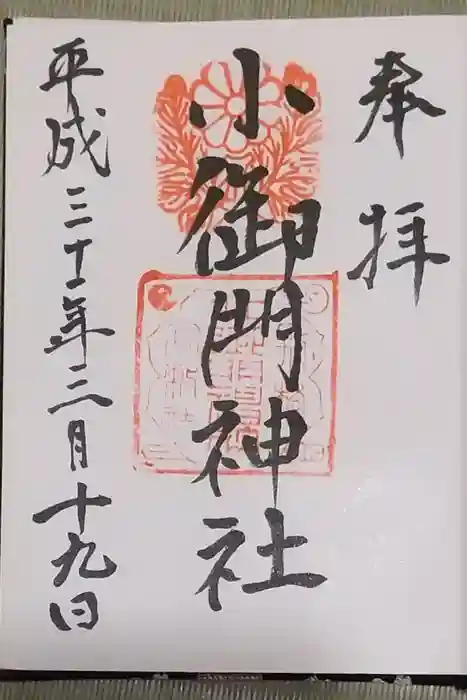 奉拝
小御門神社
平成三十一年三月十九日